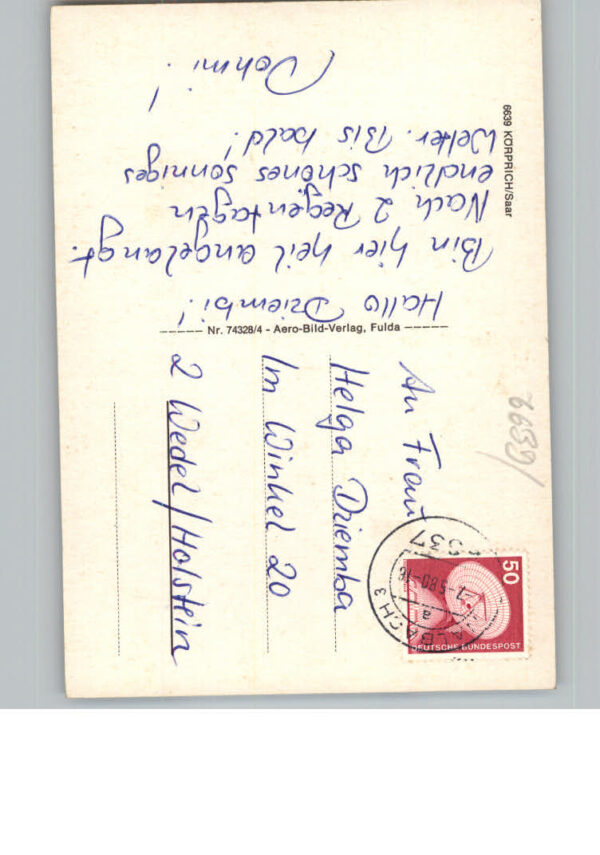 6639 KÖRPRICH/Saar
Hallo Dziembi!
Bin hier heil angelangt.
Nach 2 Regentagen
endlich schönes sonniges
Wetter. Bis bald!
Nr. 74328/4 - Aero-Bild-Verlag, Fulda
An Frau
Helga Dziemba
Im Winkel 20
2 Wedel/Holstein
50
DEUTSCHE BUNDESPOST
ALBACH 3
a
-7.-5.80-18
6639/